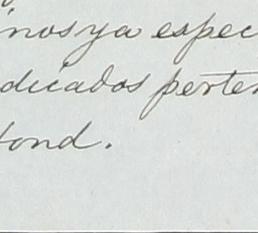 inos ya espec
dicados perten
fond.